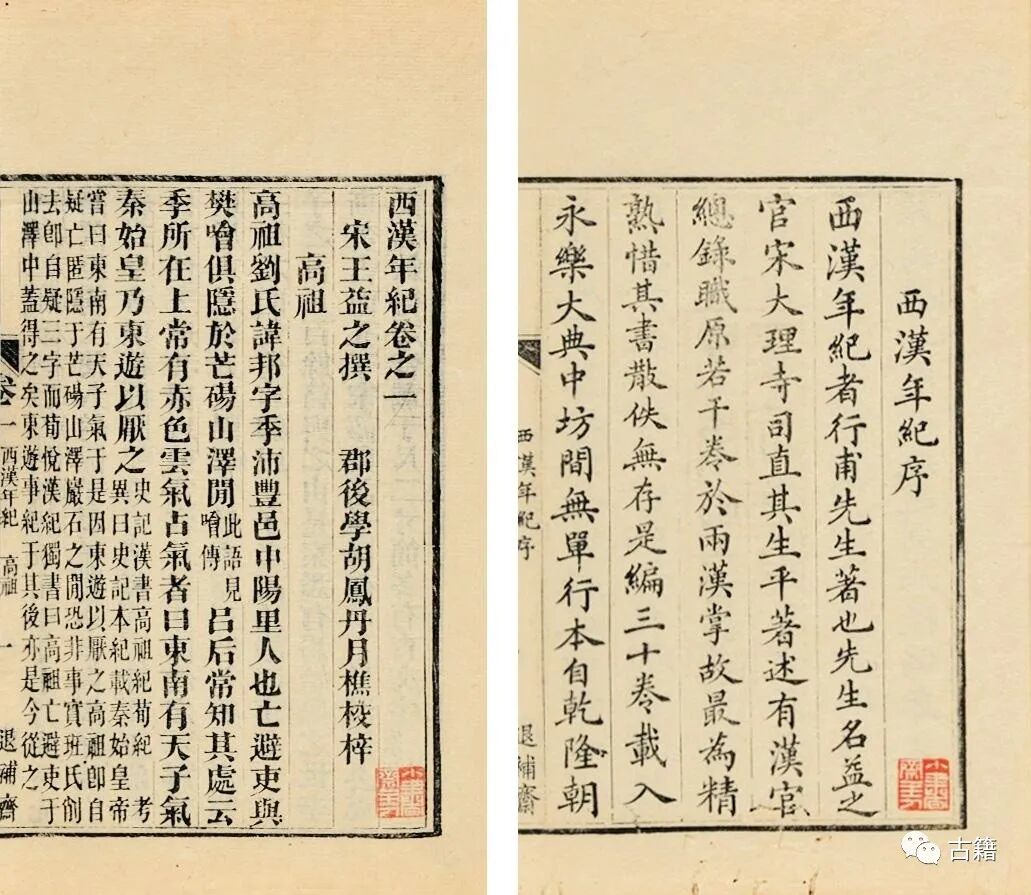 西漢年紀序
西漢年紀者行甫先生著也先生名益之
官宋大理寺司直其生平著述有漢官
總錄職原若干卷於兩漢掌故最為精
熟惜其書散佚無存是編三十卷載入
永樂大典中坊間無單行本自乾隆朝
西漢年紀序 退補齋
西漢年紀卷之一
宋王益之撰 郡後學胡鳳丹月樵校梓
高祖
高祖劉氏諱邦字季沛豐邑中陽里人也亡避吏與
樊噲俱隱於芒碭山澤閒此語見噲傳呂后常知其處云
季所在上常有赤色雲氣占氣者曰東南有天子氣
秦始皇乃東遊以厭之史記漢書高祖紀荀紀 考異曰史記本紀載秦始皇帝
嘗曰東南有天子氣于是因東遊以厭之高祖卽自
疑亡匿隱于芒碭山澤巖石之閒恐非事實班氏削
去卽自疑三字而荀悅漢紀獨書曰高祖亡避吏于
山澤中蓋得之矣東遊事紀于其後亦是今從之
卷一 西漢年紀 高祖 一 退補齋
古籍